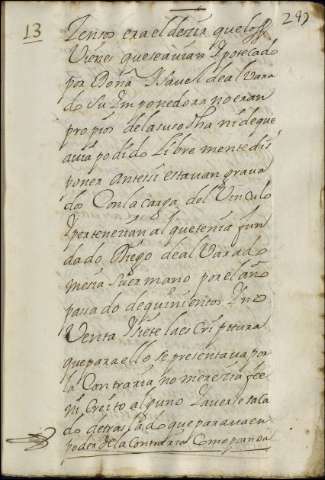 13
297
Zenso era el dezir que los
Vienes que se avian Ypotecado
por Doña Ysavel de alvara
do su Ymponedora no eran
propios de la suso dha ni de que
avia podido libremente dis
poner antes si estavan grava
do con la carga del Vinculo
Y pertenezian al que tenia fun
dado Diego de alvarado
mesia su ermano por el año
pasado de quinientos Y no
Venta Y siete la escripttura
que para ello se presentava por
la Contraria no merezia fee
ni Credito alguno Y averse saca
do de tras lado que parava en
poder de la Contraria Como parezia